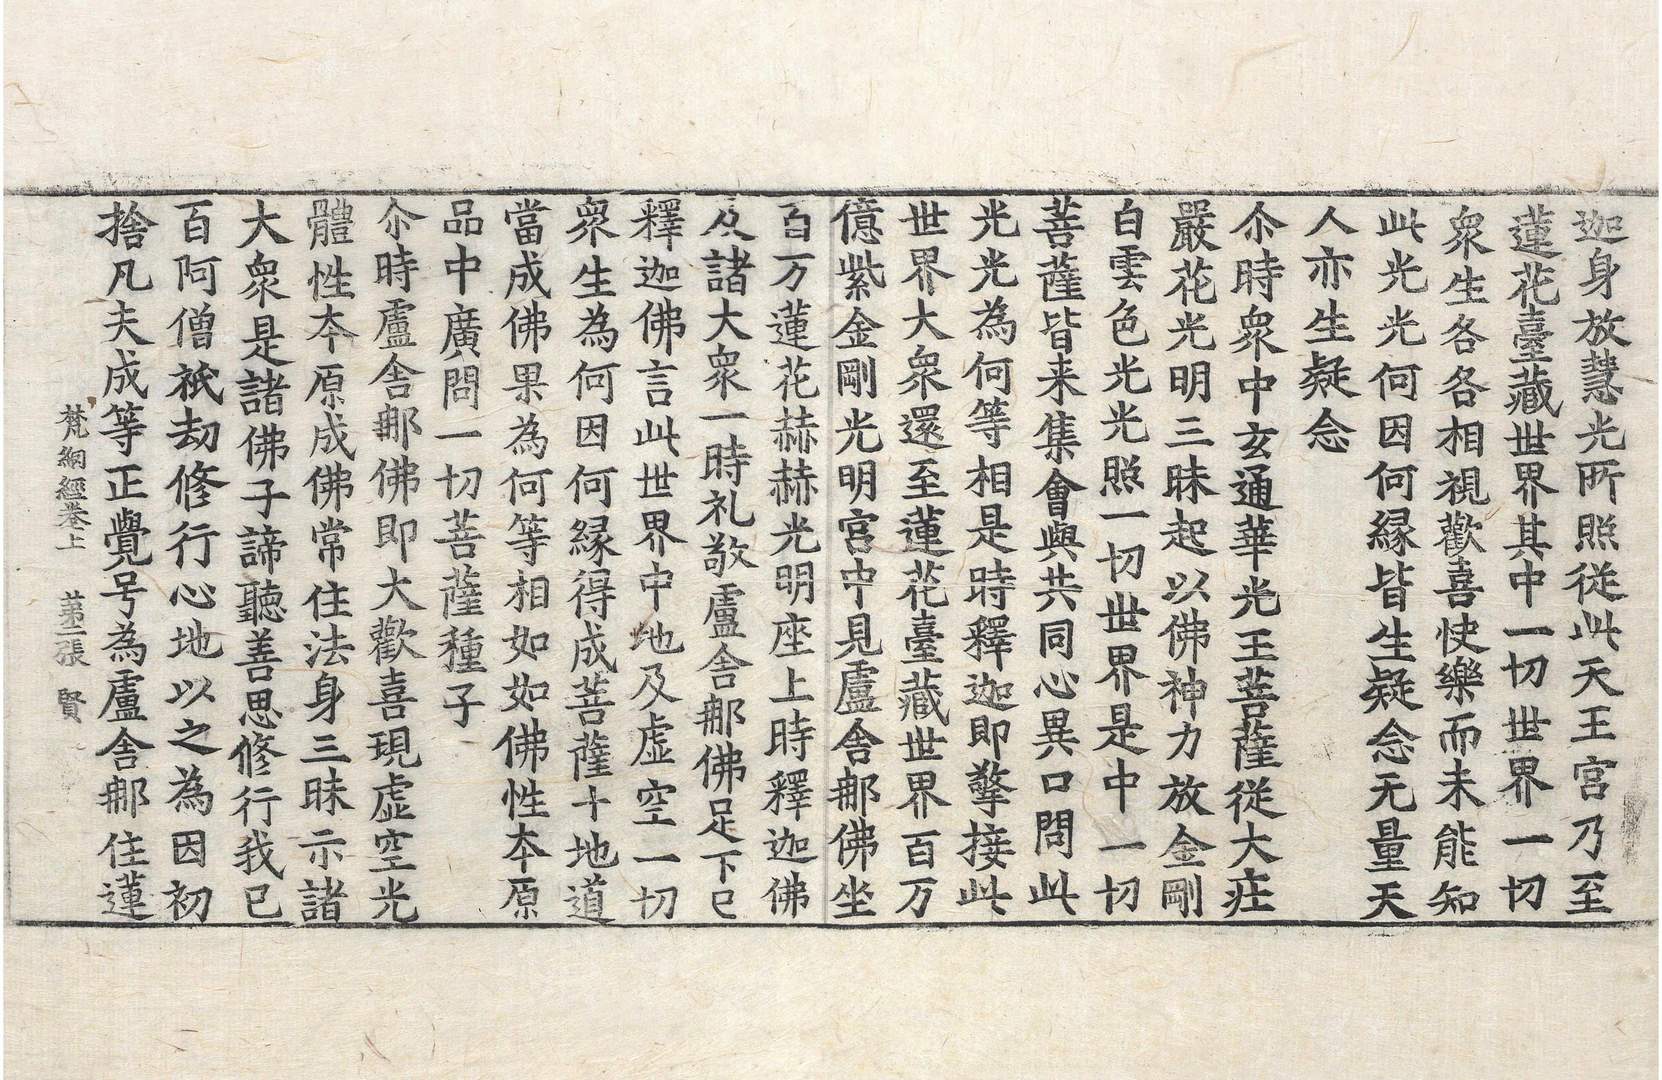 迦身放慧光所照從此天王宮乃至
蓮花臺藏世界其中一切世界一切
衆生各各相視歡喜快樂而未能知
此光光何因何縁皆生疑念无量天
人亦生疑念
尒時衆中玄通華光王菩薩從大庄
嚴花光明三昧起以佛神力放金剛
白雲色光光照一切世界是中一切
菩薩皆来集會與共同心異口問此
光光為何等相是時釋迦即擎接此
世界大衆還至蓮花臺藏世界百万
億紫金剛光明宮中見盧舎𨚗佛坐
百万蓮花赫赫光明座上時釋迦佛
及諸大衆一時礼敬盧舎𨚗佛足下已
釋迦佛言此世界中地及虛空一切
衆生為何因何縁得成菩薩十地道
當成佛果為何等相如如佛性夲原
品中廣問一切菩薩種子
尒時盧舎𨚗佛即大歡喜現虛空光
體性夲原成佛常住法身三昧示諸
大衆是諸佛子諦聽善思修行我已
百阿僧祇劫修行心地以之為因初
捨凡夫成等正覺号為盧舎𨚗住蓮
梵網經巻上 苐二張 賢